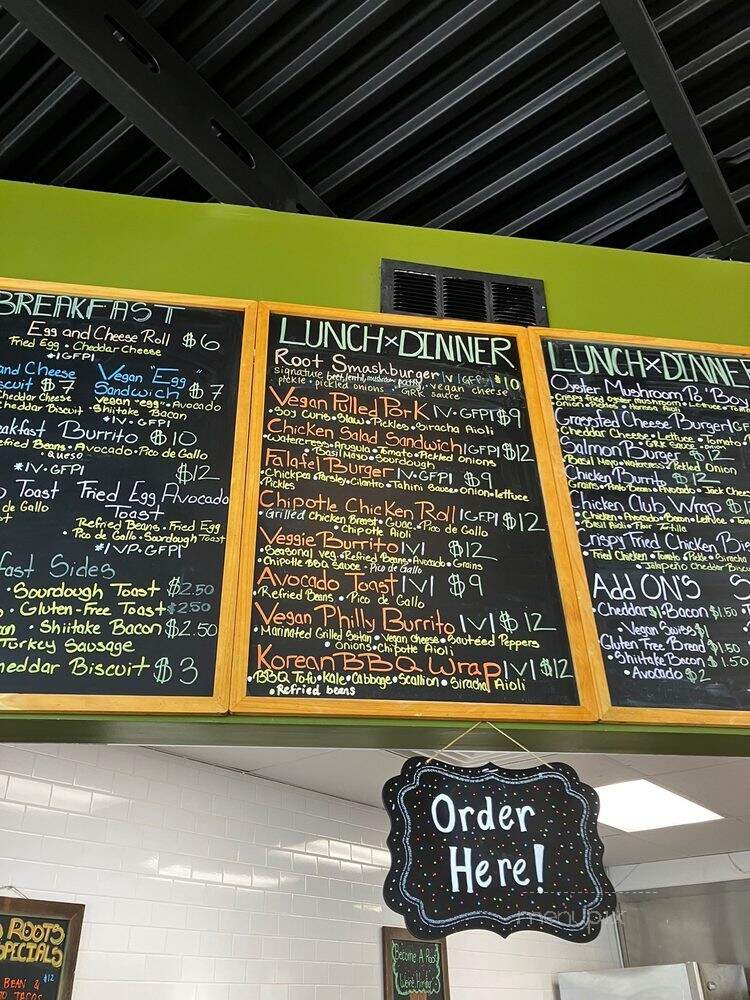 BREAKFAST
Egg and Cheese Roll $6
Fried Egg • Cheddar Cheese
*IGFPI
and Cheese
scuit $7
Cheddar Cheese
Cheddar Biscuit
Vegan "Egg"
Sandwich $7
vegan "egg" • Avocado
• Shiitake Bacon
*IV•GFPI
akfast Burrito $10
Refried Beans • Avocado • Pico de Gallo
• Queso
*IV•GFPI
$12
Toast
de Gallo
Fried Egg Avocado
Toast
Refried Beans • Fried Egg
• Pico de Gallo • Sourdough Toast
*IVP•GFPI
fast Sides
• Sourdough Toast $2.50
• Gluten-Free Toast $2.50
• Shiitake Bacon $2.50
Turkey Sausage
heddar Biscuit $3
LUNCH×DINNER
Root Smashburger IV IGFPI $10
signature beet, lentil, mushroom patty, vegan cheese
pickle • pickled onions • GRK sauce
Vegan Pulled Pork IV•GFPI $9
Soy Curls • Slaw • Pickles • Siracha Aioli
Chicken Salad Sandwich IGFPI $12
• Watercress • Arugula • Tomato • Pickled Onions
Basil Mayo • Sourdough
Falafel Burger IV•GFPI $9
Chickpea • Parsley • Cilantro • Tahini Sauce • Onion • Lettuce
• Pickles
Chipotle Chicken Roll IGFPI $12
• Grilled Chicken Breast • Guac • Pico de Gallo
• Chipotle Aioli
Veggie Burrito IVI $12
• Seasonal veg • Refried Beans • Avocado • Grains
Chipotle BBQ Sauce • Pico de Gallo
Avocado Toast IVI $9
Refried Beans • Pico de Gallo
Vegan Philly Burrito IVI $12
• Marinated Grilled Seitan • Vegan cheese • Sautéed Peppers
• Onions • Chipotle Aioli
Korean BBQ Wrap IVI $12
• BBQ Tofu • Kale • Cabbage • Scallion • Siracha Aioli
• Refried beans
LUNCH×DINNE
Oyster Mushroom Po'Boy
Crispy fried oyster mushroom • Lettuce • To
Onion • Pickles • Harissa Aioli
Grassfed Cheese Burger IGF
Cheddar Cheese • Lettuce • Tomato
• GRK Sauce
Salmon Burger $12
Basil Mayo • Watercress • Pickled Onion
Chicken Burrito $12
Grains • Pinto Beans • Avocado • Jack Chee
Chicken Club Wrap $1
• Chicken • Avocado • Bacon • Lettuce • To
Basil Aioli • Flour Tortilla
Crispy Fried Chicken Bis
• Fried Chicken • Tomato • Pickle • Siracha
• Jalapeño Cheddar Biscuit
Add ON'S
Cheddar $1
Bacon $1.50
• Vegan Swiss $1
Gluten Free Bread $1.50
• Shiitake Bacon $1.50
• Avocado $2
Order
Here!
menupix
ROOTS
SPECIALS
BEAN & $12
TACOS
Become A Root